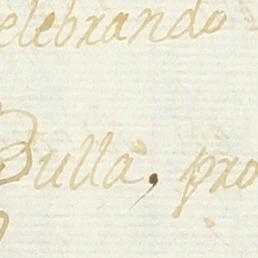 celebrando
Bulla, pro